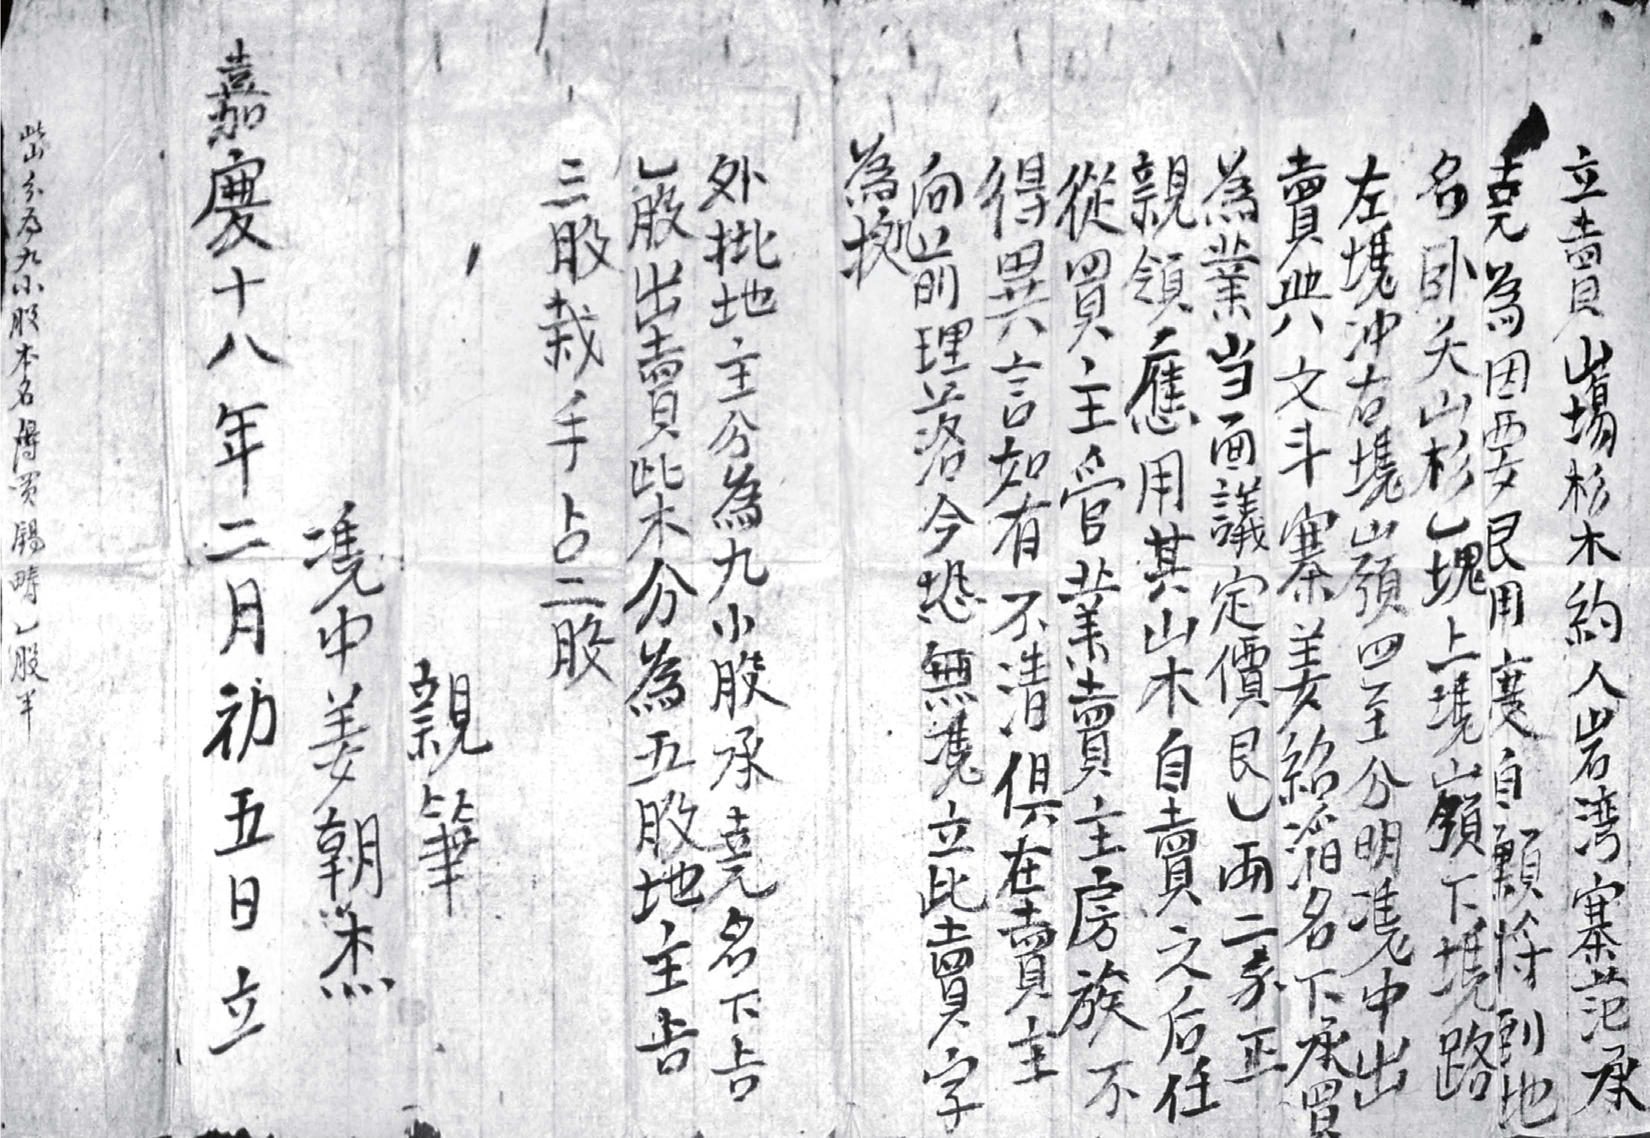 立賣山塲杉木約人岩湾寨范承
堯為因要艮用度自願将到地
名卧夭山杉乚塊上塊山嶺下塊路
左塊冲右塊山嶺四至分明凴中出
賣與文斗寨姜紹滔名下承買
為業当面議定價艮乚両二分正
親領應用其山木自賣之后任
從買主管業賣主房族不
得異言如有不清俱在賣主
向前理落今恐無凴立此賣字
為拠
外批地主分為九小股承堯名下占
乚股出賣此木分為五股地主占
三股栽手占二股
親筆
凴中姜朝杰
嘉慶十八年二月初五日立
此山分為九小股本名得買錫疇乚股半